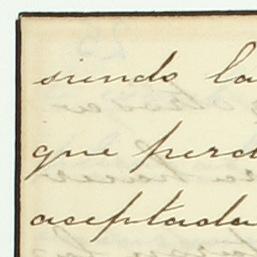 siendo la
que perd
aceptada